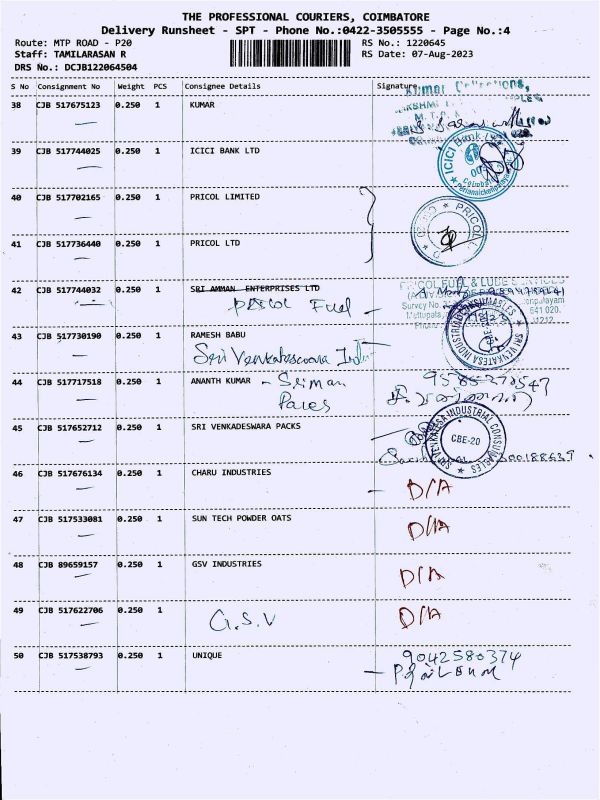 THE PROFESSIONAL COURIERS, COIMBATORE
Delivery Runsheet - SPT - Phone No.:0422-3505555 - Page No.:4
Route: MTP ROAD - P20 RS No.: 1220645
Staff: TAMILARASAN R RS Date: 07-Aug-2023
DRS No.: DCJB122064504
S No Consignment No Weight PCS Consignee Details Signature
Kumar Collections,
38 CJB 517675123 0.250 1 KUMAR
39 CJB 517744025 0.250 1 ICICI BANK LTD
ICICI Bank
40 CJB 517702165 0.250 1 PRICOL LIMITED
PRICOL
41 CJB 517736440 0.250 1 PRICOL LTD
42 CJB 517744032 0.250 1 SRI AMMAN ENTERPRISES LTD
Pricol Fuel -
641 020.
43 CJB 517730190 0.250 1 RAMESH BABU
Sri Venkateswara
SRI VENKATESA INDUSTRIAL CONSUMABLES
44 CJB 517717518 0.250 1 ANANTH KUMAR - Sriman
Paces
45 CJB 517652712 0.250 1 SRI VENKADESWARA PACKS
SRI VENKATESA INDUSTRIAL CONSUMABLES
CBE-20
46 CJB 517676134 0.250 1 CHARU INDUSTRIES
- D/A
47 CJB 517533081 0.250 1 SUN TECH POWDER OATS
D/A
48 CJB 89659157 0.250 1 GSV INDUSTRIES
D/A
49 CJB 517622706 0.250 1
G.S.V D/A
50 CJB 517538793 0.250 1 UNIQUE
9042580374